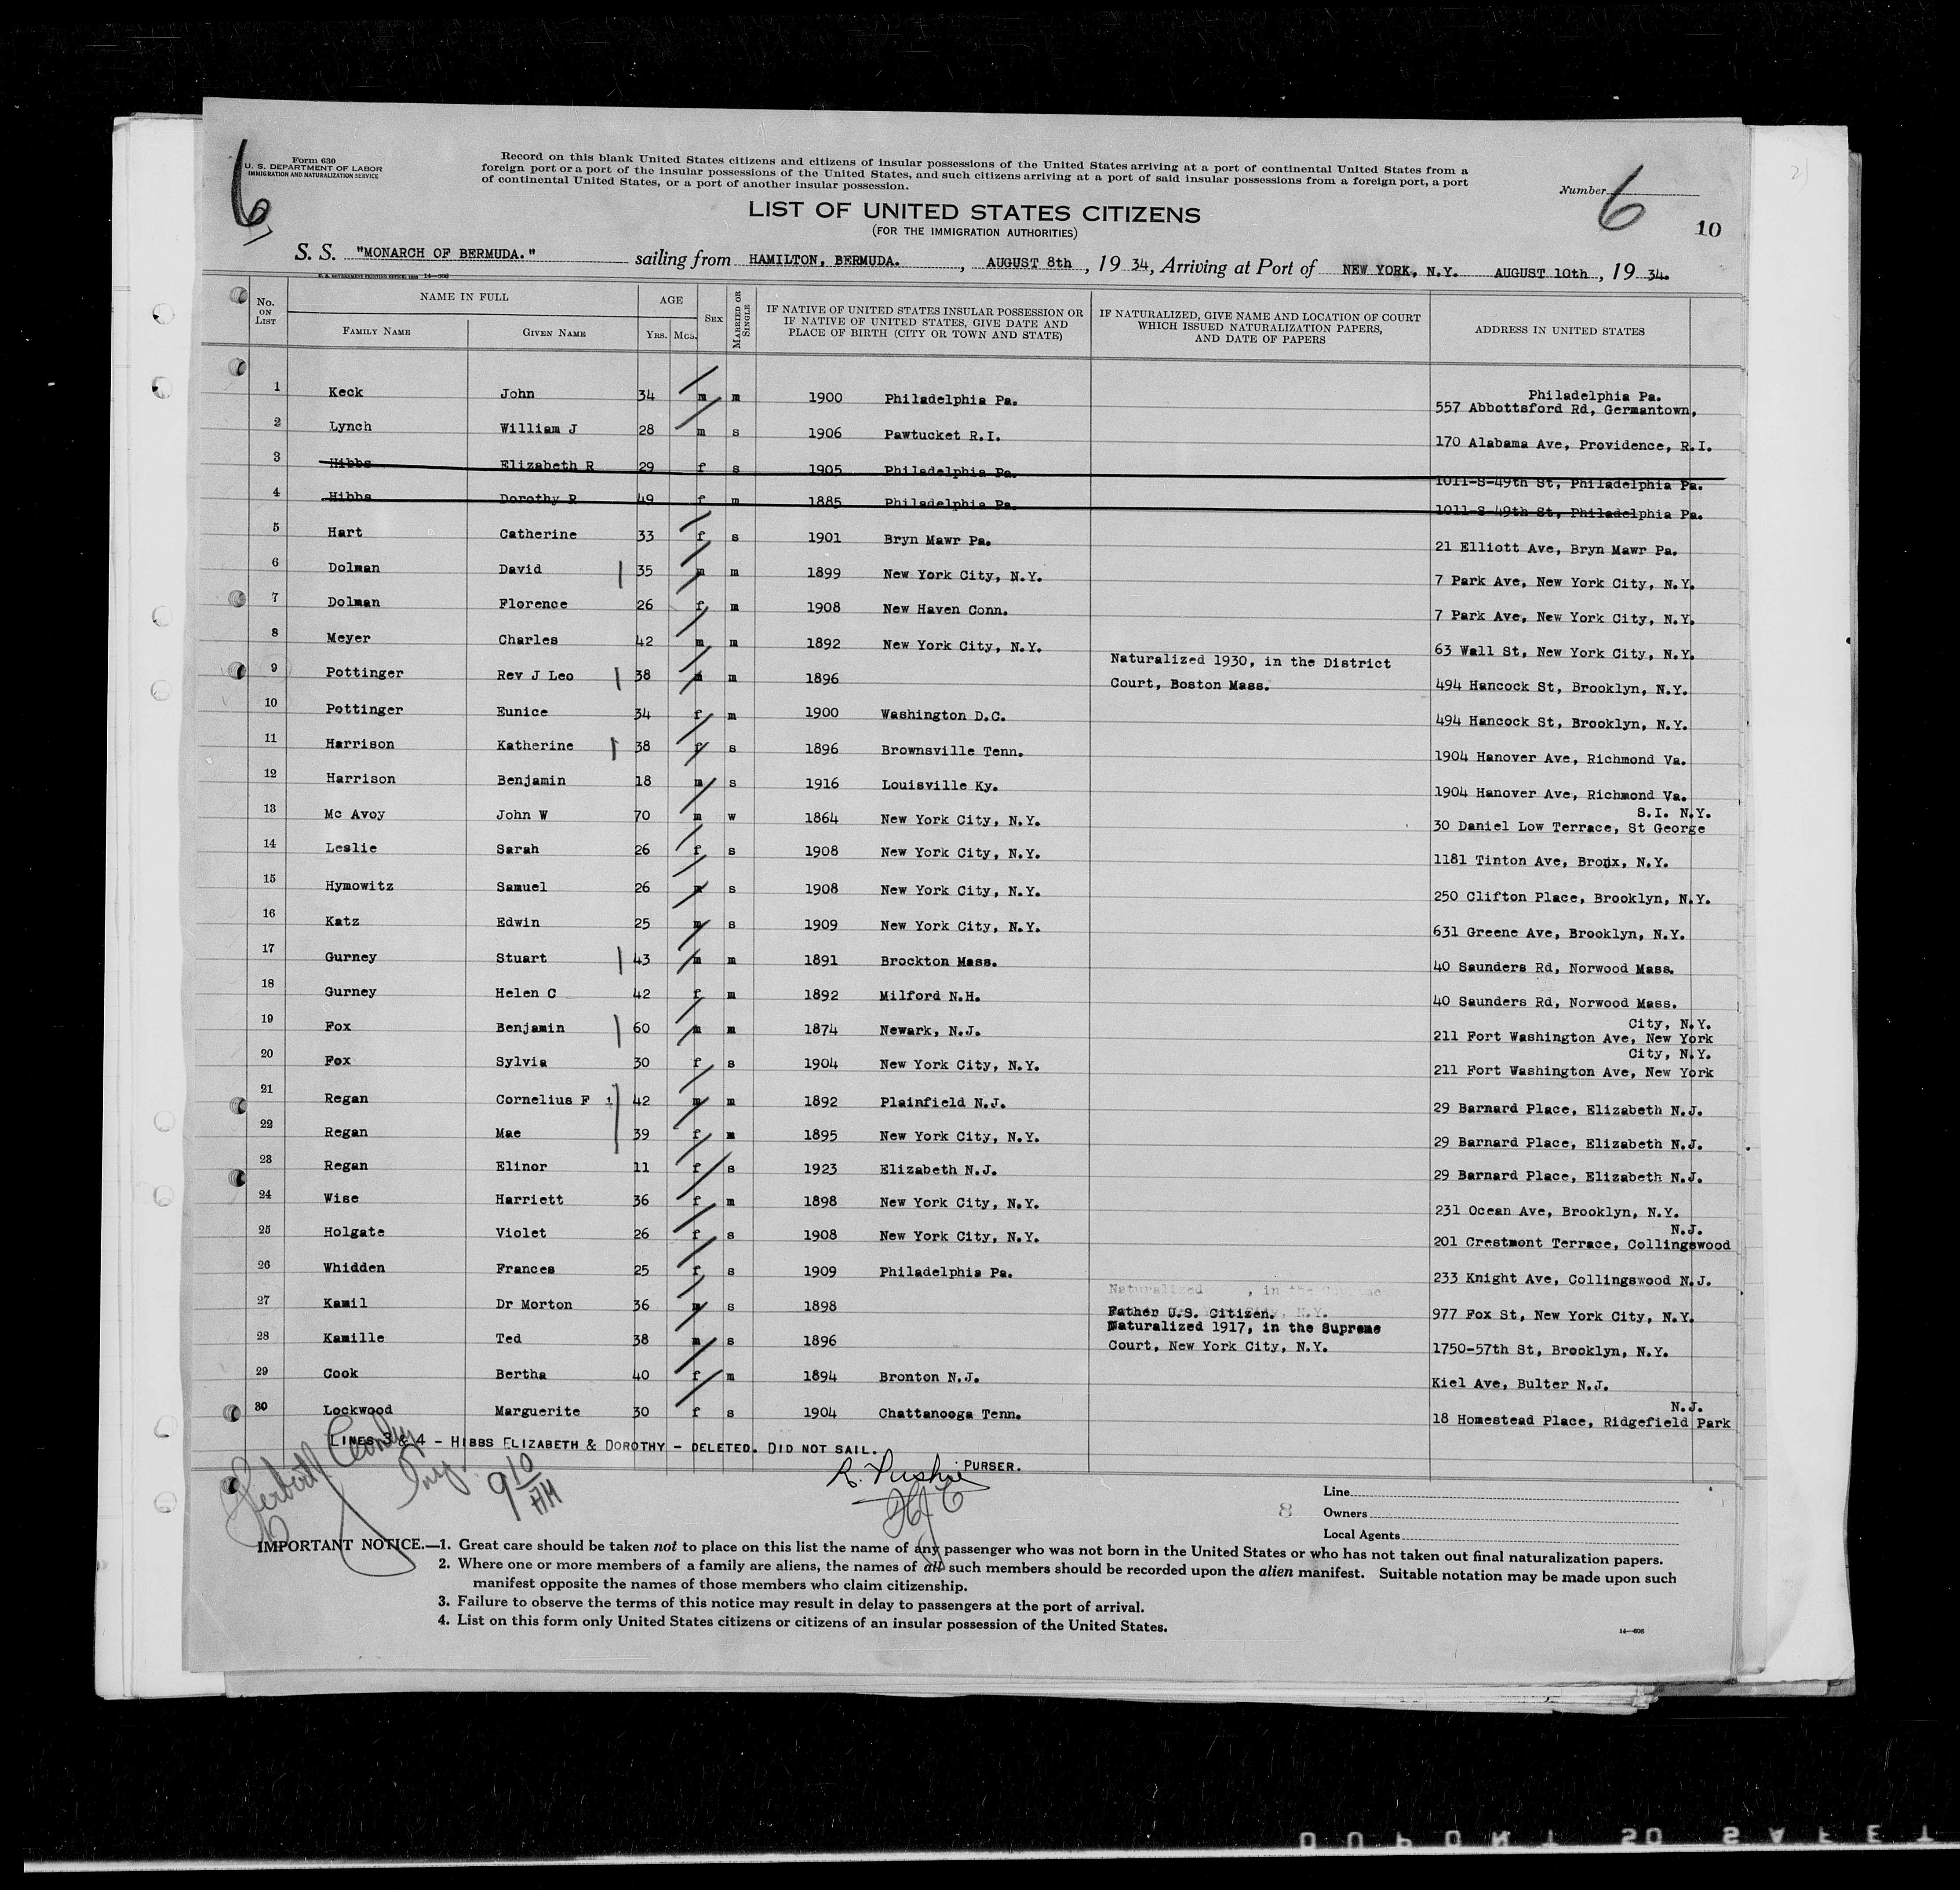 Form 630
U. S. DEPARTMENT OF LABOR
IMMIGRATION AND NATURALIZATION SERVICE
6
Record on this blank United States citizens and citizens of insular possessions of the United States arriving at a port of continental United States from a
foreign port or a port of the insular possessions of the United States, and such citizens arriving at a port of said insular possessions from a foreign port, a port
of continental United States, or a port of another insular possession.
Number 6
10
LIST OF UNITED STATES CITIZENS
(FOR THE IMMIGRATION AUTHORITIES)
S. S. "MONARCH OF BERMUDA." sailing from HAMILTON, BERMUDA. , AUGUST 8th , 19 34, Arriving at Port of NEW YORK, N.Y. AUGUST 10th , 19 34.
No. ON LIST
NAME IN FULL
FAMILY NAME GIVEN NAME
AGE
YRS. MOS.
SEX
MARRIED OR SINGLE
IF NATIVE OF UNITED STATES INSULAR POSSESSION OR
IF NATIVE OF UNITED STATES, GIVE DATE AND
PLACE OF BIRTH (CITY OR TOWN AND STATE)
IF NATURALIZED, GIVE NAME AND LOCATION OF COURT
WHICH ISSUED NATURALIZATION PAPERS,
AND DATE OF PAPERS
ADDRESS IN UNITED STATES
Philadelphia Pa.
1 Keck John 34 m m 1900 Philadelphia Pa. 557 Abbottsford Rd, Germantown,
2 Lynch William J 28 m s 1906 Pawtucket R.I. 170 Alabama Ave, Providence, R.I.
3 Hibbs Elizabeth R 29 f s 1905 Philadelphia Pa. 1011-S-49th St, Philadelphia Pa.
4 Hibbs Dorothy R 49 f m 1885 Philadelphia Pa. 1011-S-49th St, Philadelphia Pa.
5 Hart Catherine 33 f s 1901 Bryn Mawr Pa. 21 Elliott Ave, Bryn Mawr Pa.
6 Dolman David 35 m m 1899 New York City, N.Y. 7 Park Ave, New York City, N.Y.
7 Dolman Florence 26 f m 1908 New Haven Conn. 7 Park Ave, New York City, N.Y.
8 Meyer Charles 42 m m 1892 New York City, N.Y. 63 Wall St, New York City, N.Y.
Naturalized 1930, in the District
9 Pottinger Rev J Leo 38 m m 1896 Court, Boston Mass. 494 Hancock St, Brooklyn, N.Y.
10 Pottinger Eunice 34 f m 1900 Washington D.C. 494 Hancock St, Brooklyn, N.Y.
11 Harrison Katherine 38 f s 1896 Brownsville Tenn. 1904 Hanover Ave, Richmond Va.
12 Harrison Benjamin 18 m s 1916 Louisville Ky. 1904 Hanover Ave, Richmond Va.
S.I. N.Y.
13 Mc Avoy John W 70 m w 1864 New York City, N.Y. 30 Daniel Low Terrace, St George
14 Leslie Sarah 26 f s 1908 New York City, N.Y. 1181 Tinton Ave, Bronx, N.Y.
15 Hymowitz Samuel 26 m s 1908 New York City, N.Y. 250 Clifton Place, Brooklyn, N.Y.
16 Katz Edwin 25 m s 1909 New York City, N.Y. 631 Greene Ave, Brooklyn, N.Y.
17 Gurney Stuart 43 m m 1891 Brockton Mass. 40 Saunders Rd, Norwood Mass.
18 Gurney Helen C 42 f m 1892 Milford N.H. 40 Saunders Rd, Norwood Mass.
City, N.Y.
19 Fox Benjamin 60 m m 1874 Newark, N.J. 211 Fort Washington Ave, New York
City, N.Y.
20 Fox Sylvia 30 f s 1904 New York City, N.Y. 211 Fort Washington Ave, New York
21 Regan Cornelius F 42 m m 1892 Plainfield N.J. 29 Barnard Place, Elizabeth N.J.
22 Regan Mae 39 f m 1895 New York City, N.Y. 29 Barnard Place, Elizabeth N.J.
23 Regan Elinor 11 f s 1923 Elizabeth N.J. 29 Barnard Place, Elizabeth N.J.
24 Wise Harriett 36 f m 1898 New York City, N.Y. 231 Ocean Ave, Brooklyn, N.Y.
N.J.
25 Holgate Violet 26 f s 1908 New York City, N.Y. 201 Crestmont Terrace, Collingswood
26 Whidden Frances 25 f s 1909 Philadelphia Pa. 233 Knight Ave, Collingswood N.J.
Naturalized , in the Supreme
27 Kamil Dr Morton 36 m s 1898 Father U.S. Citizen. N.Y. 977 Fox St, New York City, N.Y.
Naturalized 1917, in the Supreme
28 Kamille Ted 38 m s 1896 Court, New York City, N.Y. 1750-57th St, Brooklyn, N.Y.
29 Cook Bertha 40 f m 1894 Bronton N.J. Kiel Ave, Bulter N.J.
N.J.
30 Lockwood Marguerite 30 f s 1904 Chattanooga Tenn. 18 Homestead Place, Ridgefield Park
LINES 3 & 4 - HIBBS ELIZABETH & DOROTHY - DELETED. DID NOT SAIL.
PURSER.
9 10 AM
8
Line
Owners
Local Agents
IMPORTANT NOTICE.—1. Great care should be taken not to place on this list the name of any passenger who was not born in the United States or who has not taken out final naturalization papers.
2. Where one or more members of a family are aliens, the names of all such members should be recorded upon the alien manifest. Suitable notation may be made upon such
manifest opposite the names of those members who claim citizenship.
3. Failure to observe the terms of this notice may result in delay to passengers at the port of arrival.
4. List on this form only United States citizens or citizens of an insular possession of the United States.
14—606